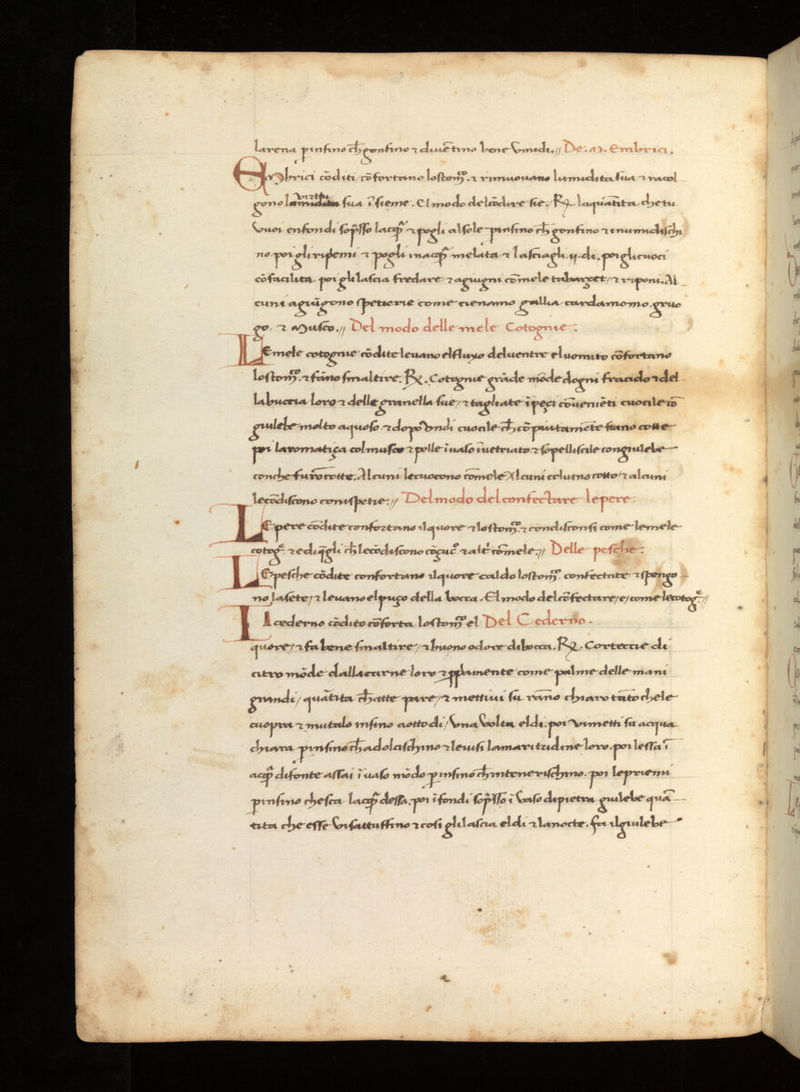 larena p infino ch̄ gonfino ⁊ diuētino bene humidi. // De. m. Embrici.
Embrici cōditi cōfortano lo stom̄. ⁊ rimuouano lumidita sua ⁊ racol
gono la uirtu sua īsieme. El modo del cōdire sie. ℞. la quātita che tu
vuoi enfondi sōpsso lacq̄ ⁊ pogli al sole p infino ch̄ gonfino ⁊ inumidischi
no poi gli ripiemi ⁊ pogli in acq̄ melata ⁊ lasciagli. ij. di. poi gli cuoci
cō facilita poi gli lascia fredare ⁊ agiugni cō mele tabarzet / ⁊ riponi. Al
cuni agiūgono spetierie come cienamo gallia cardamomo. gruo
go. ⁊ musco. // Del modo delle mele Cotognie.
LE mele cotognie cōdite leuano el fluxo del uentre el uomito cōfortano
lo stom̄. ⁊ fāno smaltire. ℞. Cotognie grāde mōde dogni fracido ⁊ del
la buccia loro ⁊ delle granella sue / ⁊ tagliate ī peçi cōueniēti cuocile cō
giulebe molto aquoso ⁊ dopo undi cuocile ch̄ cōpiutamēte siano cotte
poi laromatiça col musco ⁊ polle ī uaso īuetriato ⁊ sōpelliscile con giulebe
con che furō cotte. Alcuni le cuocono cō mele Alcuni col uino cotto / ⁊ alcuni
le cōdiscono con ispetie. // Del modo del confectare le pere.
LE pere cōdite confortano il quore ⁊ lo stom̄. ⁊ condisconsi come le mele
cotoḡ. ⁊ ed i q̄gli ch̄ le cōdiscono cō çuc̄. ⁊ altr̄ cō mele. // Delle pesche.
LE pesche cōdite confortano il quore caldo lo stom̄. confectate ⁊ spengo
no la sete / ⁊ leuano el puço della bocca. El modo del cōfectare / e / come le cotoḡ. //
Il cederno cōdito cōforta lo stom̄ el Del Cederno.
quore / ⁊ fa bene smaltire / ⁊ buono odore di bocca. ℞. Corteccie di
citro mōde dalla carne loro ⁊ ppiamente come palme delle mani
grandi / quātita ch̄ atte pare / ⁊ mettiui su rāno chiaro tāto che le
cuopra ⁊ mutalo infino a otto di / una uolta el di. poi ui metti su acqua
chiara p infino ch̄ adolcischino ⁊ leuisi lamaritudine loro. poi lessa ī
acq̄ di fonte assai ī uaso mōdo p infino ch̄ intenerischino. poi le priemi
p infino che sca lacq̄ dessa. poi īfondi sōpsso ī uaso di pietra giulebe quā
tita che esse ui sattuffino ⁊ cosi gli lascia el di ⁊ la nocte. fa il giulebe